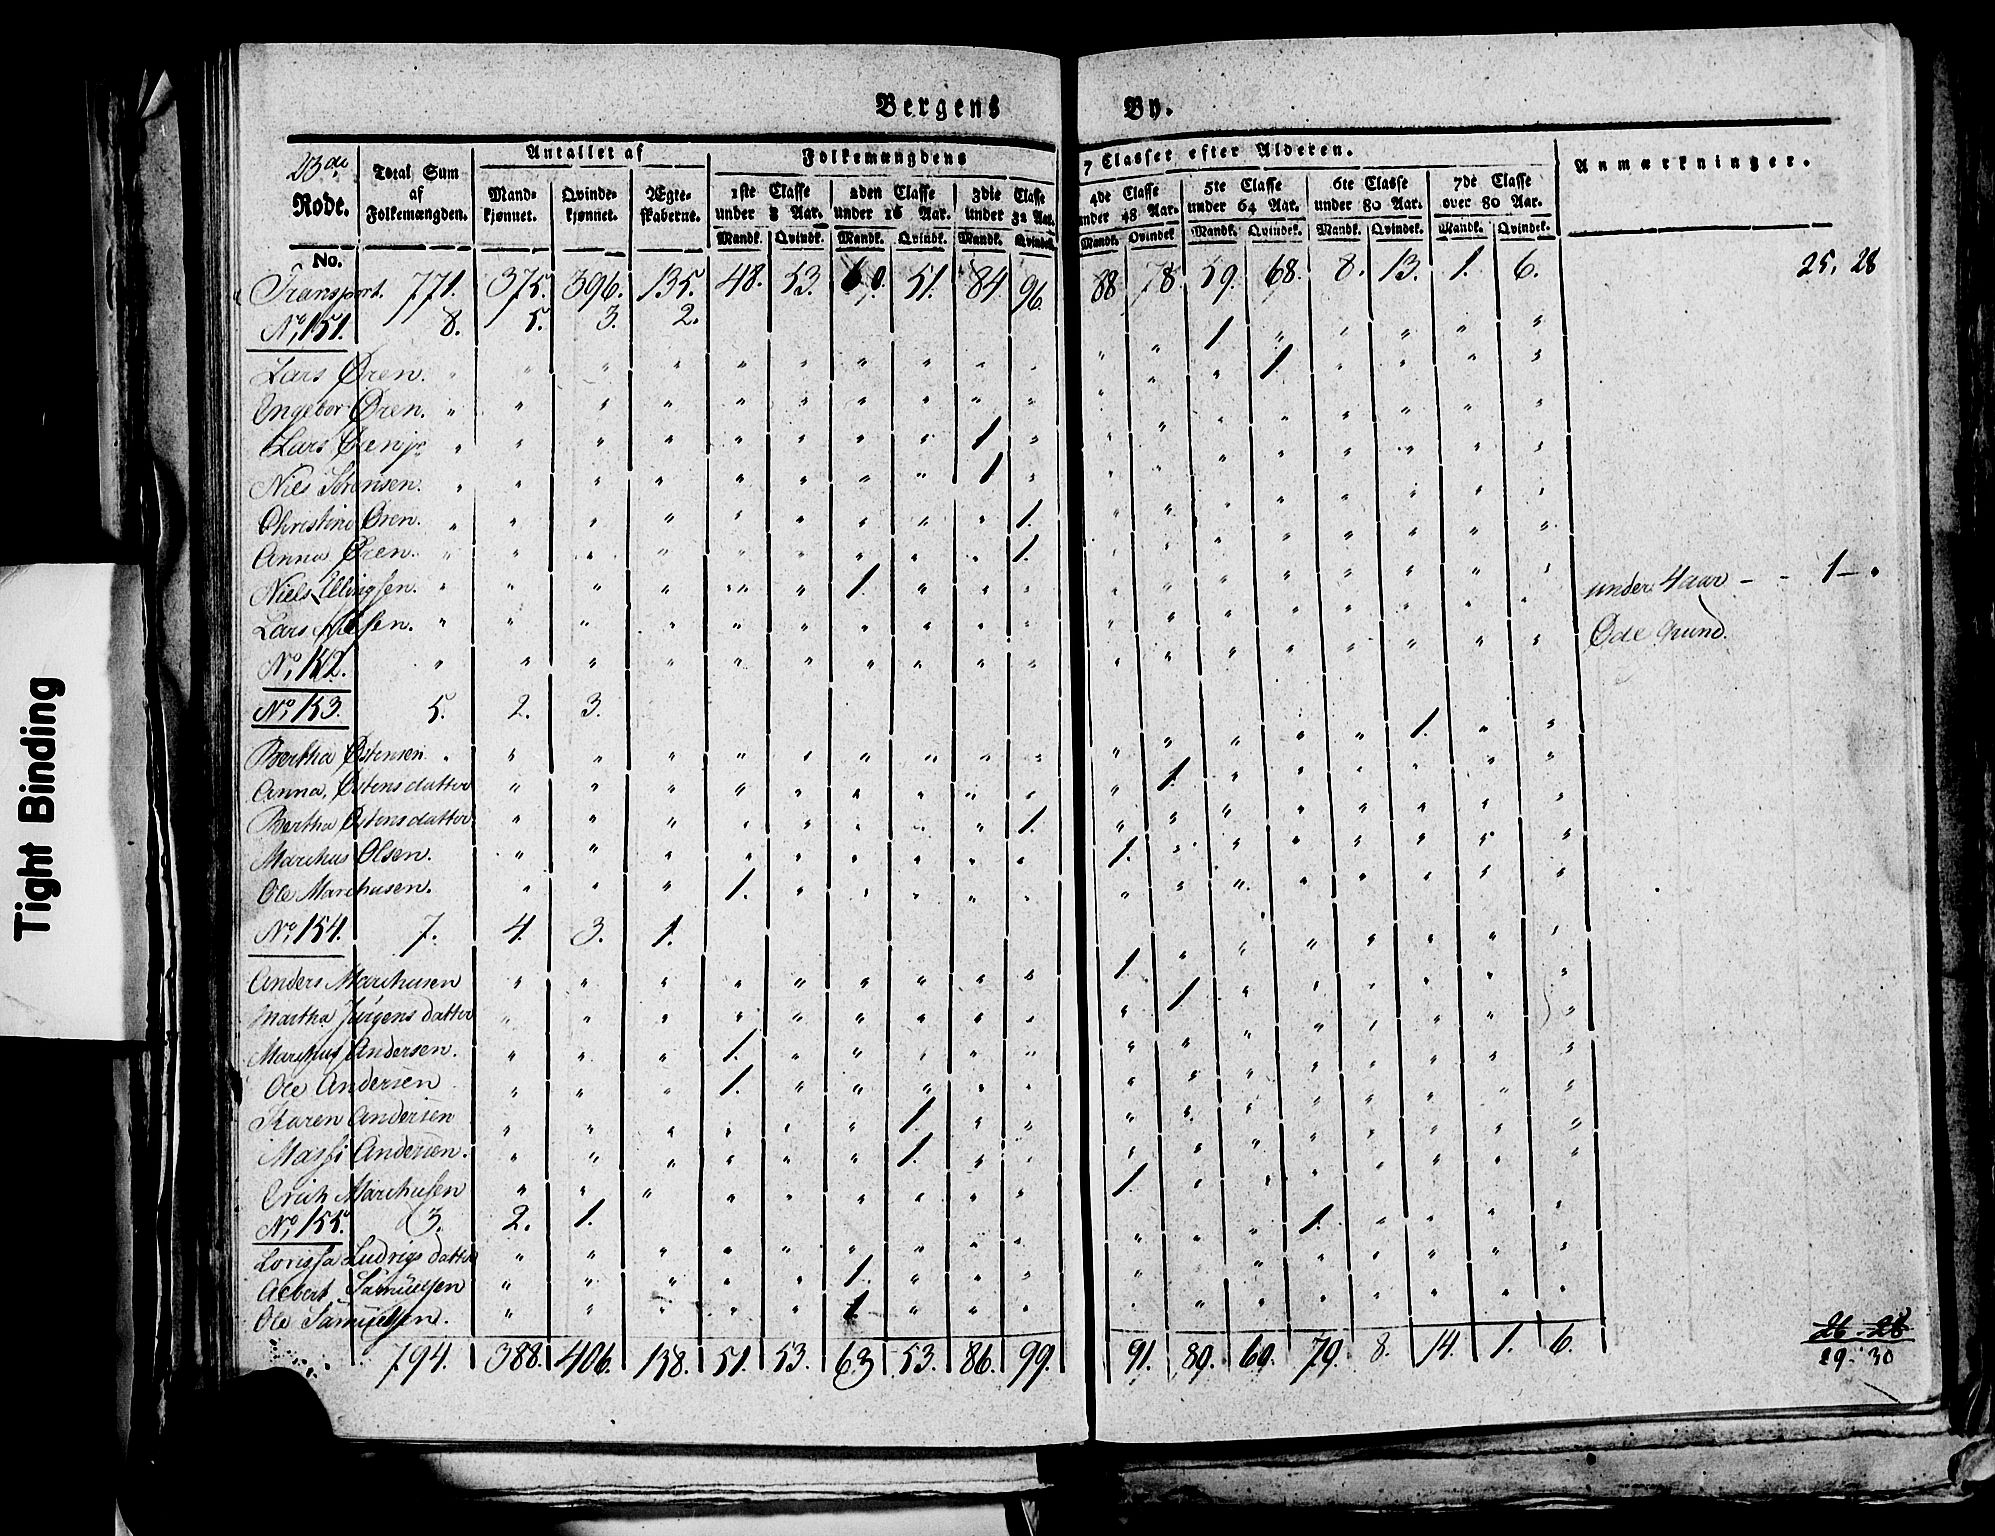 Bergens By.
23de Rode. Total Sum af Folkemængden. Antallet af Folkemængdens 7 Classer efter Alderen. Anmærkninger.
Mandkjønnet. Qvindekjønnet. Ægteskaberne. 1ste Classe under 8 Aar. 2den Classe under 16 Aar. 3die Classe under 32 Aar. 4de Classe under 48 Aar. 5te Classe under 64 Aar. 6te Classe under 80 Aar. 7de Classe over 80 Aar.
Mandk. Qvindk. Mandk. Qvindk. Mandk. Qvindek. Mandk. Qvindek. Mandk. Qvindek. Mandk. Qvindek. Mandk. Qvindek.
No.
Transport. 771. 375. 396. 135. 48. 53. 60. 51. 84. 96. 88 78. 59. 68. 8. 13. 1. 6. 25. 28
No. 151. 8. 5. 3. 2.
Lars Øren. 1.
Ingebor Øren. 1.
Lars Øren jr 1.
Niels Sørensen. 1.
Christine Øren. 1.
Anna Øren. 1.
Niels Ellingsen. 1.
Lars Nilsen. under 4 aar - - 1 -
No. 152. Øde Grund.
No. 153. 5. 2. 3.
Bertha Østensen 1.
Anna Østensdatter 1.
Bertha Østensdatter 1.
Marchus Olsen. 1.
Ole Marchusen. 1.
No. 154. 7. 4. 3. 1.
Anders Marchusen 1
Martha Jürgensdatter 1.
Marchus Andersen. 1.
Ole Andersen 1.
Karen Andersen 1.
Massi Andersen. 1.
Erich Marchusen 1.
No. 155. 3. 2. 1.
Lovissa Ludvigsdatter 1.
Albert Samuelsen 1.
Ole Samuelsen. 1.
794. 388. 406. 138. 51. 53. 63 53. 86. 99. 91. 80. 60. 70. 8. 14. 1. 6. 26. 28
29. 30
Tight Binding